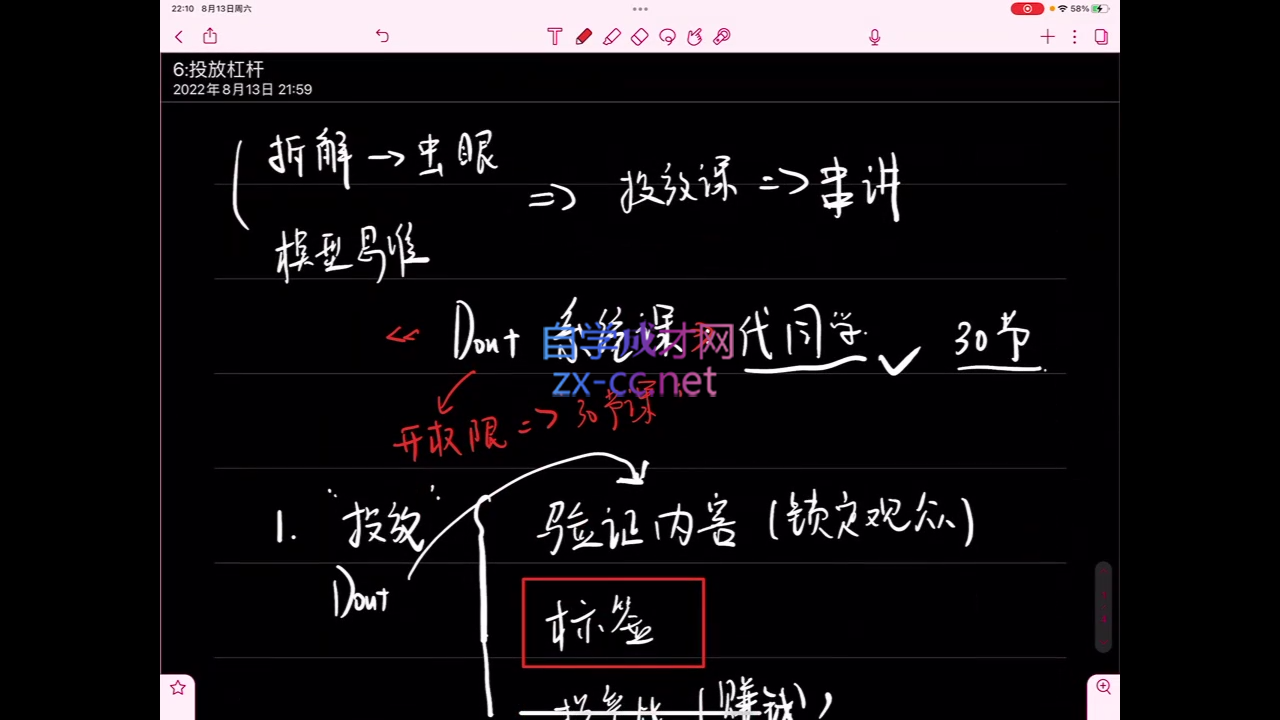 22:10 8月13日周六
58%
6:投放杠杆
2022年8月13日 21:59
拆解→虫眼
模型思维
=> 投放课 => 串讲
<< Dou+ 系统课 代同学 ✓ 30节
自学成才网
zx-cc.net
开权限 => 30节课
1. "投放" 验证内容(锁定观众)
Dou+
标签
(赚钱)